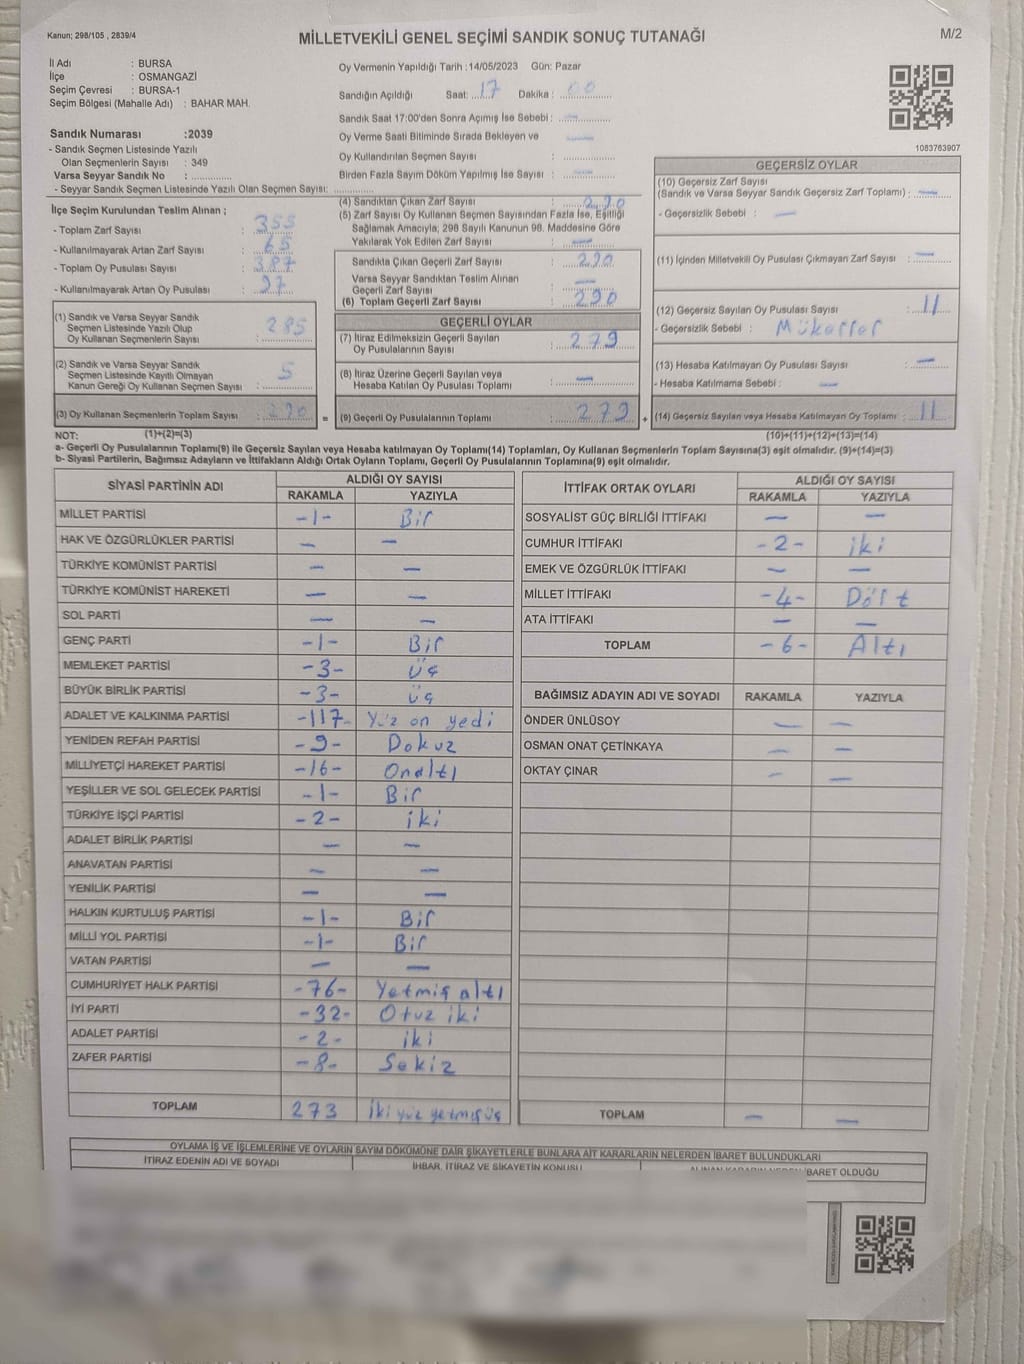 Kanun; 298/105 , 2839/4
MİLLETVEKİLİ GENEL SEÇİMİ SANDIK SONUÇ TUTANAĞI
M/2
İl Adı : BURSA
İlçe : OSMANGAZİ
Seçim Çevresi : BURSA-1
Seçim Bölgesi (Mahalle Adı) : BAHAR MAH.
Sandık Numarası :2039
- Sandık Seçmen Listesinde Yazılı
Olan Seçmenlerin Sayısı : 349
Varsa Seyyar Sandık No : ..............
- Seyyar Sandık Seçmen Listesinde Yazılı Olan Seçmen Sayısı: ..............
Oy Vermenin Yapıldığı Tarih :14/05/2023 Gün: Pazar
Sandığın Açıldığı Saat: 17 Dakika : 00
Sandık Saat 17:00'den Sonra Açımış İse Sebebi : —
Oy Verme Saati Bitiminde Sırada Bekleyen ve —
Oy Kullandırılan Seçmen Sayısı : ..............
Birden Fazla Sayım Döküm Yapılmış İse Sayısı : —
1083763907
İlçe Seçim Kurulundan Teslim Alınan ;
- Toplam Zarf Sayısı : 355
- Kullanılmayarak Artan Zarf Sayısı : 65
- Toplam Oy Pusulası Sayısı : 387
- Kullanılmayarak Artan Oy Pusulası : 97
(1) Sandık ve Varsa Seyyar Sandık
Seçmen Listesinde Yazılı Olup
Oy Kullanan Seçmenlerin Sayısı : 285
(2) Sandık ve Varsa Seyyar Sandık
Seçmen Listesinde Kayıtlı Olmayan
Kanun Gereği Oy Kullanan Seçmen Sayısı : 5
(3) Oy Kullanan Seçmenlerin Toplam Sayısı : 290
(4) Sandıktan Çıkan Zarf Sayısı : 290
(5) Zarf Sayısı Oy Kullanan Seçmen Sayısından Fazla İse, Eşitliği
Sağlamak Amacıyla, 298 Sayılı Kanunun 98. Maddesine Göre
Yakılarak Yok Edilen Zarf Sayısı : —
Sandıkta Çıkan Geçerli Zarf Sayısı : 290
Varsa Seyyar Sandıktan Teslim Alınan
Geçerli Zarf Sayısı : —
(6) Toplam Geçerli Zarf Sayısı : 290
GEÇERLİ OYLAR
(7) İtiraz Edilmeksizin Geçerli Sayılan
Oy Pusulalarının Sayısı : 279
(8) İtiraz Üzerine Geçerli Sayılan veya
Hesaba Katılan Oy Pusulası Toplamı : —
= (9) Geçerli Oy Pusulalarının Toplamı : 279
GEÇERSİZ OYLAR
(10) Geçersiz Zarf Sayısı
(Sandık ve Varsa Seyyar Sandık Geçersiz Zarf Toplamı) : —
- Geçersizlik Sebebi : —
(11) İçinden Milletvekili Oy Pusulası Çıkmayan Zarf Sayısı : —
(12) Geçersiz Sayılan Oy Pusulası Sayısı : 11
- Geçersizlik Sebebi : Mükerrer
(13) Hesaba Katılmayan Oy Pusulası Sayısı : —
- Hesaba Katılmama Sebebi : —
+ (14) Geçersiz Sayılan veya Hesaba Katılmayan Oy Toplamı : 11
NOT: (1)+(2)=(3)
(10)+(11)+(12)+(13)=(14)
a- Geçerli Oy Pusulalarının Toplamı(9) ile Geçersiz Sayılan veya Hesaba katılmayan Oy Toplamı(14) Toplamları, Oy Kullanan Seçmenlerin Toplam Sayısına(3) eşit olmalıdır. (9)+(14)=(3)
b- Siyasi Partilerin, Bağımsız Adayların ve İttifakların Aldığı Ortak Oyların Toplamı, Geçerli Oy Pusulalarının Toplamına(9) eşit olmalıdır.
SİYASİ PARTİNİN ADI
ALDIĞI OY SAYISI
RAKAMLA YAZIYLA
MİLLET PARTİSİ -1- Bir
HAK VE ÖZGÜRLÜKLER PARTİSİ — —
TÜRKİYE KOMÜNİST PARTİSİ — —
TÜRKİYE KOMÜNİST HAREKETİ — —
SOL PARTİ — —
GENÇ PARTİ -1- Bir
MEMLEKET PARTİSİ -3- Üç
BÜYÜK BİRLİK PARTİSİ -3- üç
ADALET VE KALKINMA PARTİSİ -117- Yüz on yedi
YENİDEN REFAH PARTİSİ -9- Dokuz
MİLLİYETÇİ HAREKET PARTİSİ -16- Onaltı
YEŞİLLER VE SOL GELECEK PARTİSİ -1- Bir
TÜRKİYE İŞÇİ PARTİSİ -2- iki
ADALET BİRLİK PARTİSİ — —
ANAVATAN PARTİSİ — —
YENİLİK PARTİSİ — —
HALKIN KURTULUŞ PARTİSİ -1- Bir
MİLLİ YOL PARTİSİ -1- Bir
VATAN PARTİSİ — —
CUMHURİYET HALK PARTİSİ -76- Yetmiş altı
İYİ PARTİ -32- Otuz iki
ADALET PARTİSİ -2- iki
ZAFER PARTİSİ -8- Sekiz
TOPLAM 273 İki yüz yetmişüç
İTTİFAK ORTAK OYLARI
ALDIĞI OY SAYISI
RAKAMLA YAZIYLA
SOSYALİST GÜÇ BİRLİĞİ İTTİFAKI — —
CUMHUR İTTİFAKI -2- iki
EMEK VE ÖZGÜRLÜK İTTİFAKI — —
MİLLET İTTİFAKI -4- Dört
ATA İTTİFAKI — —
TOPLAM -6- Altı
BAĞIMSIZ ADAYIN ADI VE SOYADI RAKAMLA YAZIYLA
ÖNDER ÜNLÜSOY — —
OSMAN ONAT ÇETİNKAYA — —
OKTAY ÇINAR — —
TOPLAM — —
OYLAMA İŞ VE İŞLEMLERİNE VE OYLARIN SAYIM DÖKÜMÜNE DAİR ŞİKAYETLERLE BUNLARA AİT KARARLARIN NELERDEN İBARET BULUNDUKLARI
İTİRAZ EDENİN ADI VE SOYADI İHBAR, İTİRAZ VE ŞİKAYETİN KONUSU BARET OLDUĞU